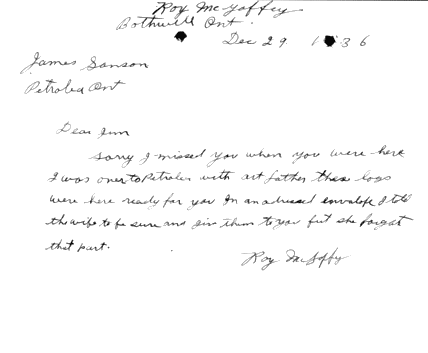 Roy McGaffey
Bothwell Ont.
Dec 29 1936
James Sanson
Petrolea Ont
Dear Jim
Sorry I missed you when you were here
I was over to Petrolea with art father these logs
were here ready for you In an adressed envelope I told
the wife to be sure and give them to you but she forgot
that part.
Roy McGaffey